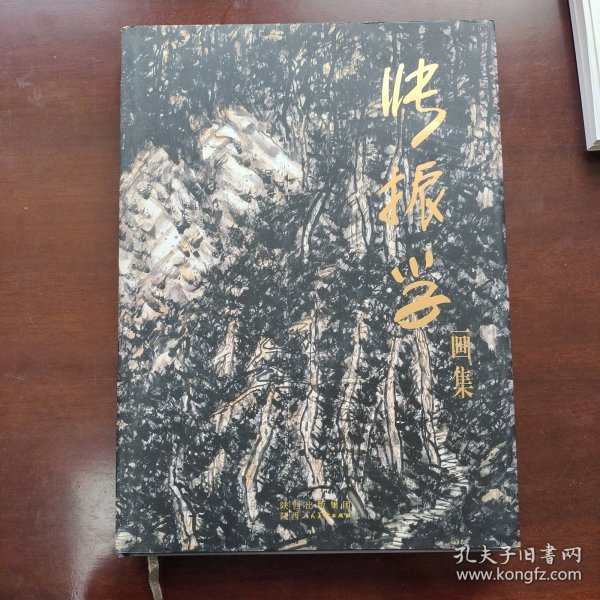 张振学
画集
陕西出版集团
陕西人民美术出版社
孔夫子旧书网
www.kongfz.com